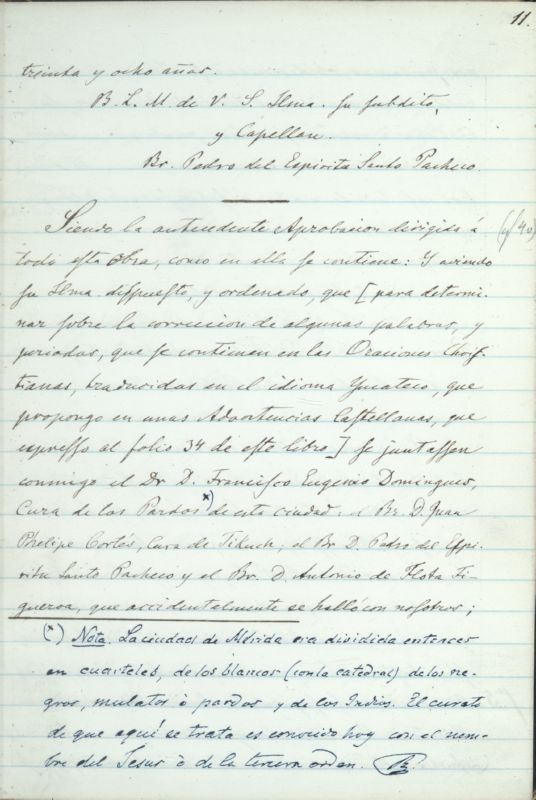 11.
treinta y ocho años.
B. L. M. de V. S. Ilma. su subdito,
y Capellan.
Br. Pedro del Espiritu Santo Pacheco.
Siendo la antecedente Aprobacion dirigida á
toda esta obra, como en ella se contiene: Y aviendo
su Ilma. dispuesto, y ordenado, que [para determi-
nar sobre la correccion de algunas palabras, y
periodos, que se contienen en las Oraciones Chris-
tianas, traducidas en el idioma Yucateco, que
propongo en unas Advertencias Castellanas, que
expresso al folio 34 de este libro] se juntassen
conmigo el Dr D. Francisco Eugenio Dominguez,
Cura de los Pardos *) de esta ciudad: el Br. D. Juan
Phelipe Cortés, Cura de Tikuch; el Br D. Pedro del Espi-
ritu Santo Pacheco y el Br. D. Antonio de Flota Fi-
gueroa, que accidentalmente se halló con nosotros;
(*) Nota. La ciudad de Mérida era dividida entonces
en cuarteles, de los blancos (con la catedral) de los ne-
gros, mulatos ò pardos y de los Indios. El curato
de que aquí se trata es conocido hoy con el nom-
bre del Jesus ò de la tercera orden.